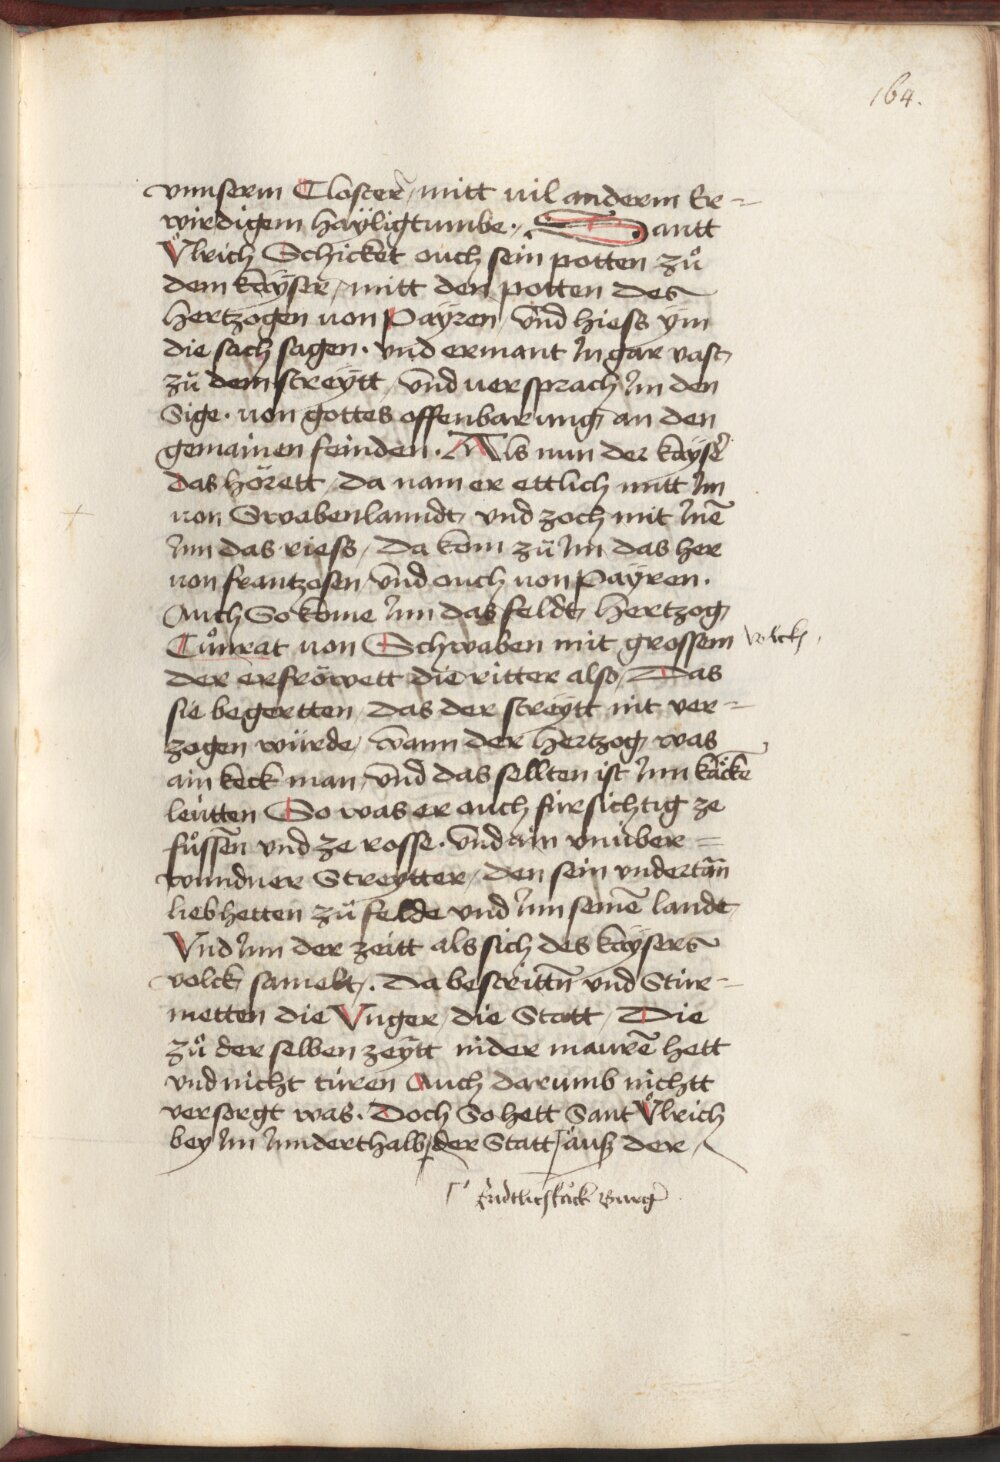 164.
vnnserm Closter / mitt uil anderm Er=
wirdigem hayligtumbe. Santt
Vͦlrich Schicket ouch sein potten zuͦ
dem kayser / mitt den potten des
Hertzogen uon Payren / vnd hiess ym
die sach sagen. vnd ermant In gar vast
zuͦ dem streÿtt / vnd uersprach Im den
Sige. uon gottes offenbarung an den
gemainen feinden. Als nun der kaysr̃
das hörett / Da nam er ettlich mitt Im
uon Swabenlanndt vnd zoch mit Inē
Inn das riess / Da kom zuͦ Im das her
uon frantzosen / vnd ouch uon Payren.
Auch So kome Inn das feldt Hertzog
Cuͦnrat uon Schwaben mit grossem volck
Der erfröwett die ritter also / Das
sie begertten / das der streytt nit ver=
zogen würde / wann der Hertzog was
ain keck man / vnd das sellten ist Inn käckē
leütten So was er ouch fürsichtig ze
fuͦssen vnd ze rosse. vnd ain vnüber=
wundner Streytter / den sein vndertān
lieb hetten zuͦ felde vnd Inn seinē landt
Vnd Inn der zeitt als sich des kaysers
volck samelt. Da bestrittn̄ vnd Stür=
metten die Vnger / die Statt / Die
zuͦ der selben zeÿtt nider maurē hett
vnd nicht türen Auch darumb nichtt
versorgt was. Doch So hett Sant Vͦlrich
bey Im Innderthalb der Statt / auß der
käck Burgr̃